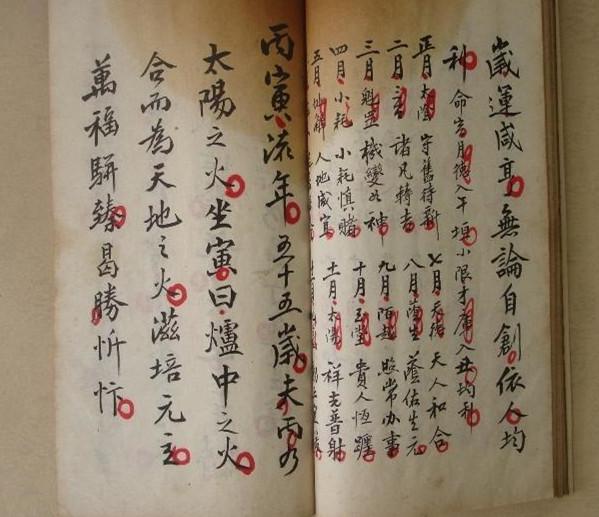 歲運咸亨無論自創依人均
利 命宮月德入午垣小限才庫入丑均利
正月太陰 守舊待新 七月天德 天人和合
二月 諸凡轉吉 八月蔭生 蔭佑生元
三月魁罡 機變如神 九月陌越 照常办事
四月小耗 小耗慎賭 十月玉堂 貴人恒躔
五月 人地咸宜 十一月太陽 祥光普射
丙寅流年 五十五歲未丙乃
太陽之火坐寅曰爐中之火
合而為天地之火滋培元主
萬福駢臻曷勝忻忭